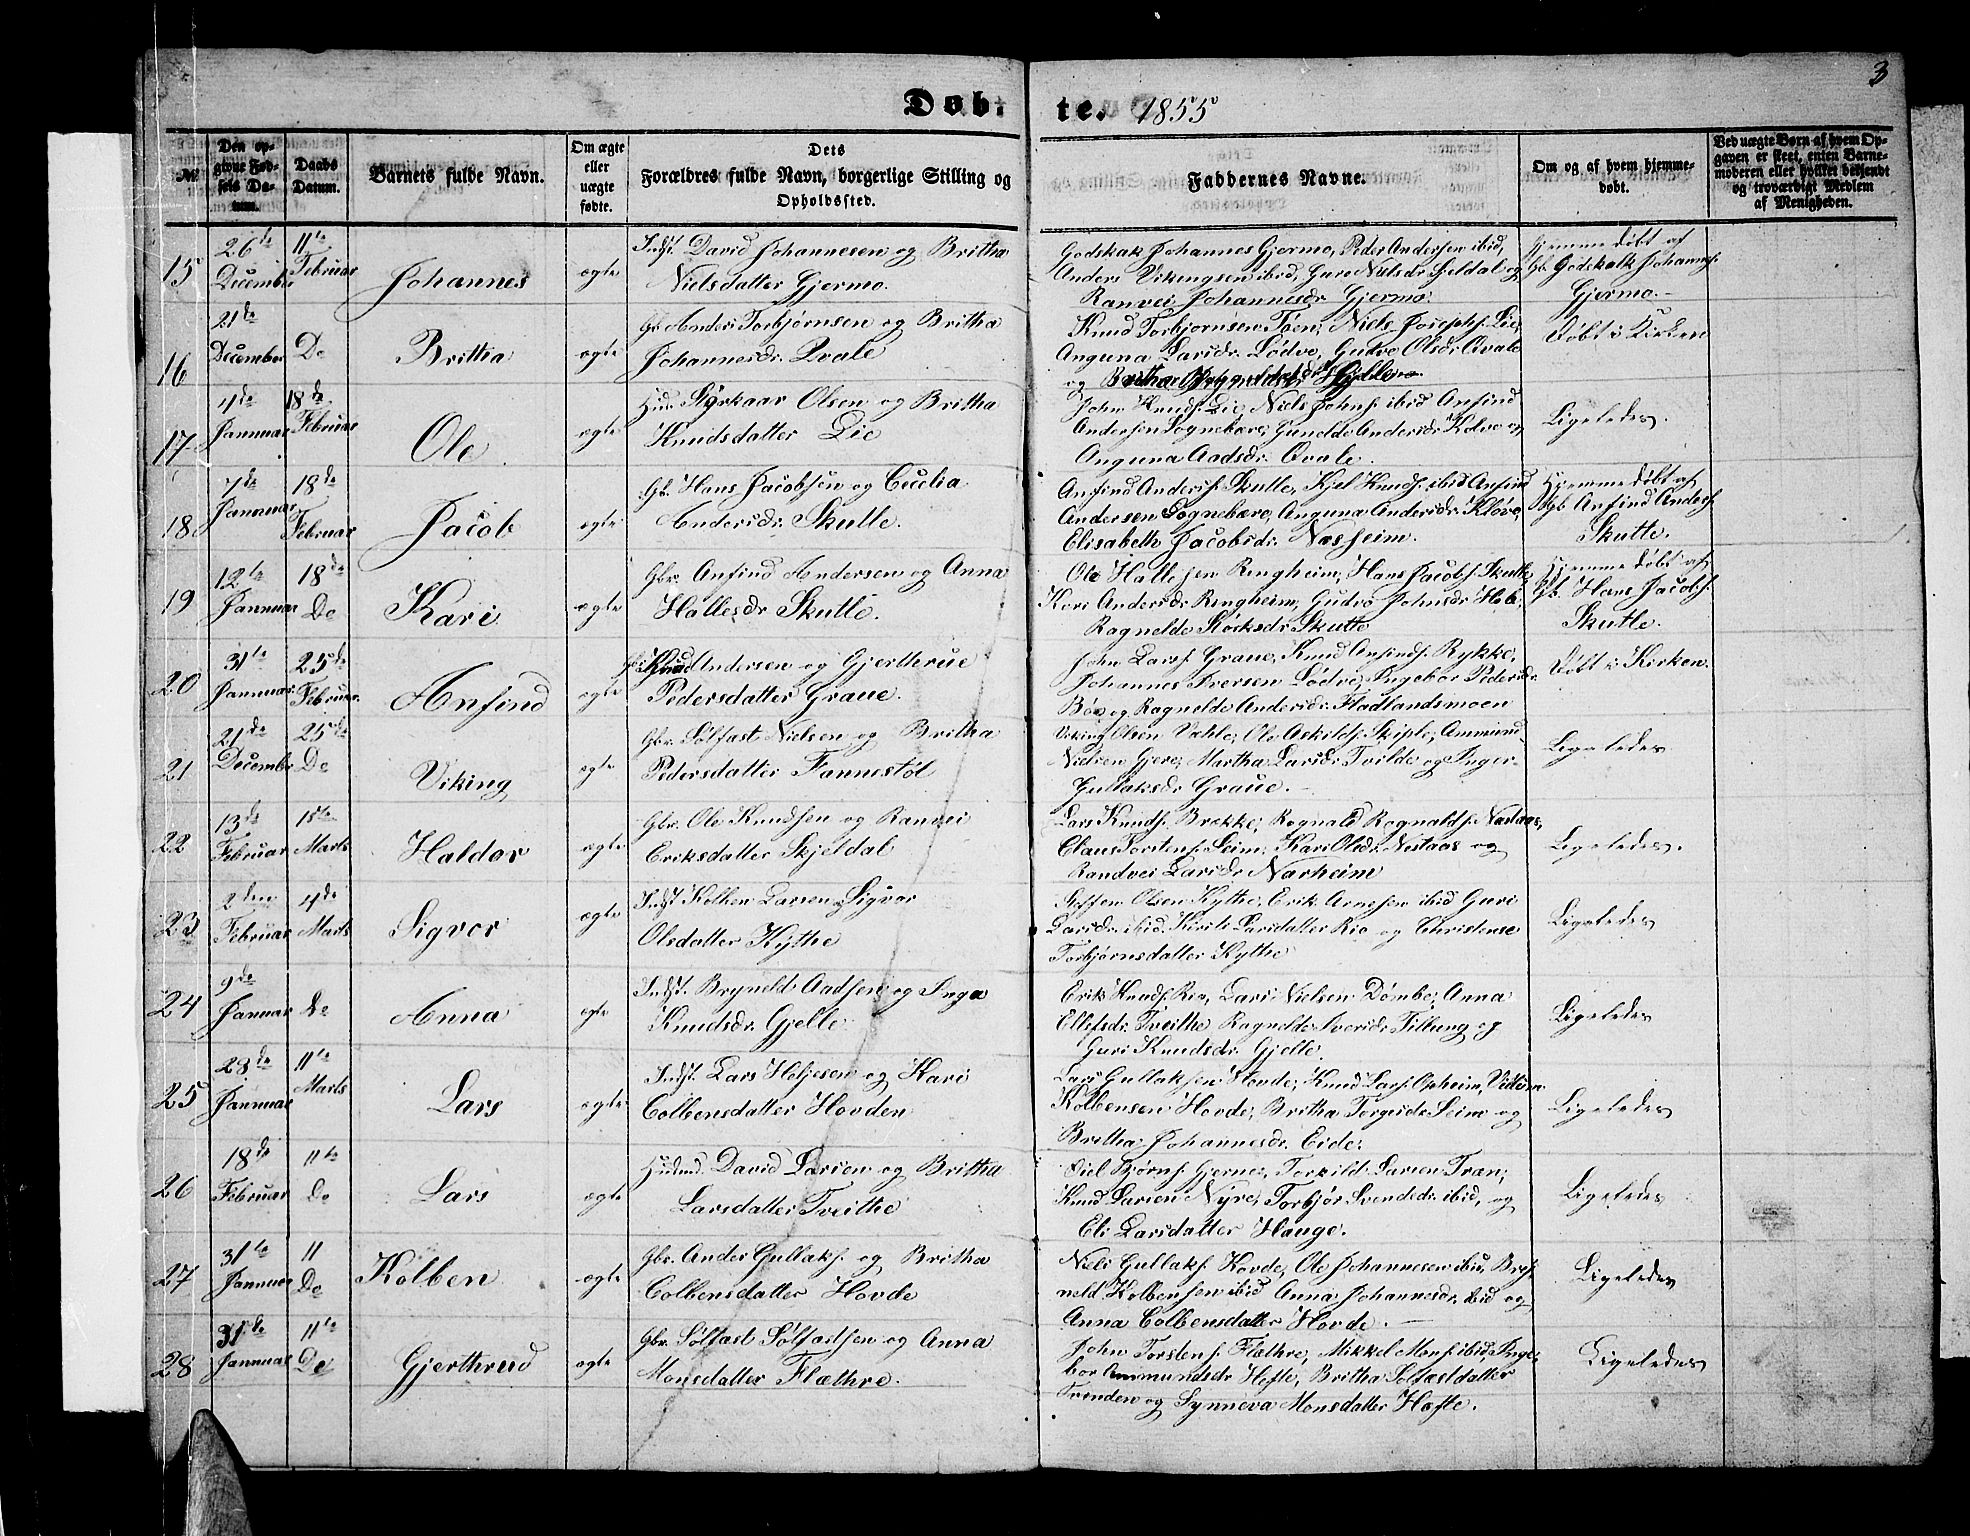 3
Døb-te. 1855
No
Den opgivne Fødsels Datum.
Daabs Datum.
Barnets fulde Navn.
Om ægte eller uægte fødte.
Dets Forældres fulde Navn, borgerlige Stilling og Opholdssted.
Faddernes Navne.
Om og af hvem hjemmedøbt.
Ved uægte Børn af hvem Opgaven er skeet, enten Barnemoderen eller hvilket vidende og troværdigt Medlem af Menigheden.
15
26de December
11te Februar
Johannes
ægte
Indst. David Johannesen og Britha
Nielsdatter Gjermo.
Godskalk Johannes Gjermo, Peder Andersen ibid,
Anders Vikingsen ibid, Guro Nielsdr Seldal og
Ranvei Johannesdr. Gjermo.
Hjemmedøbt af
Gb. Godskalk Johannes.
Gjermo.
16
21de December
Do
Britha
ægte
Gb. Anders Torbjørnsen og Britha
Johannesdr. Qvale
Knud Torbjørnsen Tøen, Niels Josephs. Lie,
Anguna Larsdr. Lødve, Gudve Olsdr. Qvale
og Britha Gjelle.
Døbt i Kirken
17
4de Januar
18de Februar
Ole
ægte
Huus. Styrkaar Olsen og Britha
Knudsdatter Lie
John Knuds. Lie, Niels Johns. ibid Anfind
Andersen Sognebære, Gunelde Andersdr. Kløve og
Anguna Aadsdr. Qvale.
Ligeledes.
18
7de Januar
18de Februar
Jacob
ægte
Gb. Hans Jacobsen og Cecelia
Andersdr. Skutle.
Anfind Anders. Skutle, Kjel Knuds. ibid Anfind
Andersen Sognebære, Anguna Andersdr. Kløve,
Elisabeth Jacobsdr. Næsheim.
Hjemmedøbt af
Gb Anfind Anders.
Skutle.
19
12te Januar
18de Do
Kari
ægte
Gbr. Anfind Andersen og Anna
Hallesdr Skutle.
Ole Hallesen Ringheim, Hans Jacobs. Skutle,
Kari Andersdr. Ringheim, Gudve Johnsdr. Hole,
Ragnelde Størksdr. Skutle
Hjemmedøbt af
Gb. Hans Jacobs.
Skutle.
20
31te Januar
25de Februar
Anfind
ægte
Knud Andersen og Gjertherue
Pedersdatter Graue.
John Lars. Graue, Knud Anfinds. Rykke,
Johannes Iversen Lødve, Ingebor Pedersdr.
Bøe og Ragnelde Andersdr. Flatlandsmoen
Døbt i Kirken.
21
21de December
25de Do
Viking
ægte
Gbr. Sølfast Nielsen og Britha
Pedersdatter Fannestøl
Viking Olsen Vahle, Ole Askilds. Skiple, Ammund
Nielsen Gjere, Martha Larsdr. Tvilde og Inger
Gullaksdr Graue.
Ligeledes
22
13de Februar
1ste Marts
Haldor
ægte
Gbr. Ole Knudsen og Ranvei
Eriksdatter Skjeldal
Lars Knuds. Brekke, Rognald Rognalds. Næstaas,
Claus Torstens. Seim, Kari Olsdr. Nestaas og
Randvei Larsdr. Narheim
Ligeledes.
23
2den Februar
4de Marts
Sigvor
ægte
Indst Kolben Larsen og Sigvor
Olsdatter Kythe
Steffen Olsen Kythe, Erik Arnesen ibid Guri
Larsdr. ibid. Kirsti Larsdatter Rio og Christense
Torbjørnsdatter Kythe
Ligeledes
24
9de Januar
Do
Anna
ægte
Indst. Bryneld Aadsen og Inga
Knudsdr. Gjelle.
Erik Knuds. Rio, Lars Nielsen Dømbe, Anna
Ellefsdr. Tveithe Ragnelde Iversdr. Tillung og
Guri Knudsdr. Gjelle.
Ligeledes
25
28de Januar
11te Marts
Lars
ægte
Indst. Lars Heljesen og Kari
Colbensdatter Hovden
Lars Gullaksen Hovde, Knud Lars. Opheim,
Kolbensen Hovde, Britha Torgersdr Seim og
Britha Johannesdr. Eide.
Ligeledes
26
18de Februar
11te Do
Lars
ægte
Huusmd. David Larsen og Britha
Larsdatter Tveithe
Siel Bjørns. Gjerne, Torkild Larsen Træn,
Knud Larsen Nyre, Torbjør Svendsdr. ibid, og
Eli Larsdatter Hauge.
Ligeledes
27
31te Januar
11 Do
Kolben
ægte
Gbr. Anders Gullaks. og Britha
Colbensdatter Hovde
Niels Gullaks. Hovde, Ole Johannesen ibid, Bry-
neld Kolbensen ibid Anna Johannesdr. ibid og
Anna Colbensdatter Hovde.
Ligeledes
28
31te Januar
11te Do
Gjerthrud
ægte
Gbr. Sølfast Sølfastsen og Anna
Monsdatter Flæthre.
John Torstens. Flæthre, Mikkel Mons. ibid, Inge-
bor Ammundsdr Hefte, Britha Solfæstdatter
og Synneva Monsdatter Hefte.
Ligeledes